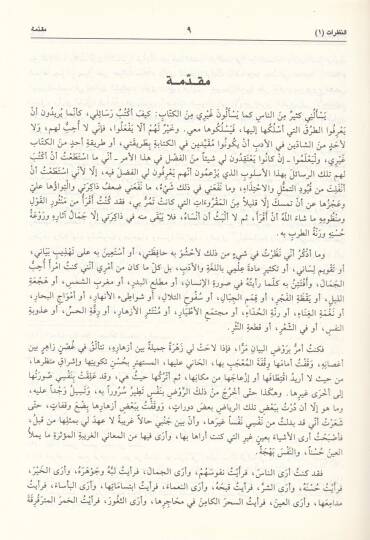 النظرات (١) ٩ مقدمة
مقدّمـة
يَسْألُني كثيرٌ مِنَ الناسِ كما يسألونَ غيْري مِنَ الكتّابِ: كيفَ أكتُبُ رَسَائلي، كأنّما يُريدُون أنْ
يَعْرِفُوا الطرُقَ التي أسْلُكُها إليها، فيَسْلُكُوها معي. وخَيْرٌ لَهُمْ ألّا يَفْعَلُوا، فإنّي لا أُحِبّ لهم، ولا
لأحَدٍ مِنَ الشادّينَ في الأدَبِ أنْ يكُونُوا مُقيّدين في الكتابةِ بِطَريقَتي، أو طَريقةِ أحَدٍ مِنَ الكتّابِ
غَيْري، وليَعْلَمُوا ـ إنْ كانُوا يَعْتقِدُونَ لي شيئاً مِنَ الفَضْلِ في هذا الأمرِ ـ أنّي ما اسْتَطَعْتُ أنْ أكتُبَ
لهم تلك الرسائلَ بهذا الأسلوبِ الذي يزْعمونَ أنهم يَعْرفُونَ لي الفَضلَ فيه، إلّا لأنّي اسْتَطَعْتُ أنْ
أتفَلّتَ مِنْ قُيودِ التمثُّلِ والاحْتِذاءِ، وما نَفَعَني في ذلك شَيْءٌ، ما نَفَعَني ضعفُ ذاكِرَتي والْتِواؤها عليّ
وعَجْزُها عن أنْ تمسكَ إلّا قليلاً مِنَ المَقْروءَاتِ التي كانتْ تَمرُّ بي، فقد كُنتُ أقْرَأ مِنْ مَنْثورِ القَوْلِ
ومنْظُومِهِ ما شاءَ اللهُ أنْ أقْرَأ، ثم لا ألْبَثُ أن أنْسَاهُ، فلا يَبْقى منه في ذاكِرَتي إلّا جَمالُ آثارِهِ ورَوْعَةُ
حُسْنِهِ ورَنّةُ الطربِ به.
وما أذكُرُ أنّي نَظَرْتُ في شيءٍ من ذلك لأحشُوَ به حافِظَتي، أو أسْتَعِينَ به على تَهْذيبِ بَيَاني،
أو تَقْويمِ لِساني، أو تَكْثيرِ مادةِ عِلْمي باللغةِ والأدَبِ، بل كلُّ ما كان من أمْري أنّني كنتُ امرأً أُحِبُّ
الجمَالَ، وأفْتَتِنُ به كلّما رأيتُهُ في صورةِ الإنسانِ، أو مطلع البدرِ، أو مغربِ الشمسِ، أو هَجْعةِ
الليلِ، أو يَقَظةِ الفَجْرِ، أو قِمَمِ الجِبَالِ، أو سُفُوحِ التلالِ، أو شواطِىءِ الأنهارِ، أو أمْوَاجِ البحارِ،
أو نَغْمَةِ الغِنَاءِ، أو رنّةِ الحُدَاءِ، أو مجتمَعِ الأطْيَارِ، أو مُنْتَثَرِ الأزهارِ، أو رِقّةِ الحسِّ، أو عذوبةِ
النفسِ، أو في الشّعْرِ، أو قطعةِ النّثْرِ.
فكنتُ أمرُّ برَوْضِ البيانِ مَرًّا، فإذا لاحَتْ لي زَهْرَةٌ جميلةٌ بين أزهارِهِ، تتألّقُ في غُصْنٍ زاهرٍ بين
أغصانِهِ، وَقَفْتُ أمامَها وِقْفَةَ المُعْجَبِ بها، الحاني عليها، المستهترِ بحُسْنِ تكوينِها وإشراقِ منظرِها،
من حيث لا أريدُ اقْتِطافَها أو إزْعاجَها من مكانِها، ثم أتركُها حيثُ هي، وقد عَلِقَتْ بنَفْسي صُورتُها
إلى أخرى غيرِها. وهكذا حتى أخْرُجَ مِنْ ذلك الرّوْضِ بنَفْسٍ تَطيرُ سُروراً به، وتَسيلُ وَجْداً عليه،
وما هو إلّا أن دُرْتُ ببَعْضِ تلك الرياضِ بعضَ دوراتٍ، ووقَفْتُ ببَعْضِ أزهارِها بِضْعَ وقفَاتٍ، حتى
شَعَرْتُ أنّي قد بدلتُ مِنْ نَفْسي نَفْساً غيرَها، وأنّ بين جَنبيَّ حالاً غريبةً لا عهدَ لي بمثلِها من قَبلُ،
فأصْبَحْتُ أرى الأشياءَ بعينٍ غيرِ التي كنت أراها بها، وأرى فيها من المعاني الغريبةِ المؤثرةِ ما يملأُ
العينَ حُسْناً، والنفْسَ بَهْجَةً.
فقد كنتُ أرَى الناسَ، فرأيْتُ نفوسَهُمْ، وأرى الجمالَ، فرأيتُ لُبَّهُ وجَوْهَرَهُ، وأرى الخَيْرَ،
فرأيتُ حُسْنَهُ، وأرَى الشرَّ، فرأيتُ قبحَهُ، وأرى النعماءَ، فرأيتُ ابتسامَاتِها، وأرى البأساءَ، فرأيتُ
مدامِعَها، وأرى العينَ، فرأيتُ السحرَ الكامنَ في محاجِرِها، وأرى الثغُورَ، فرأيتُ الخمرَ المترَقرِقةَ